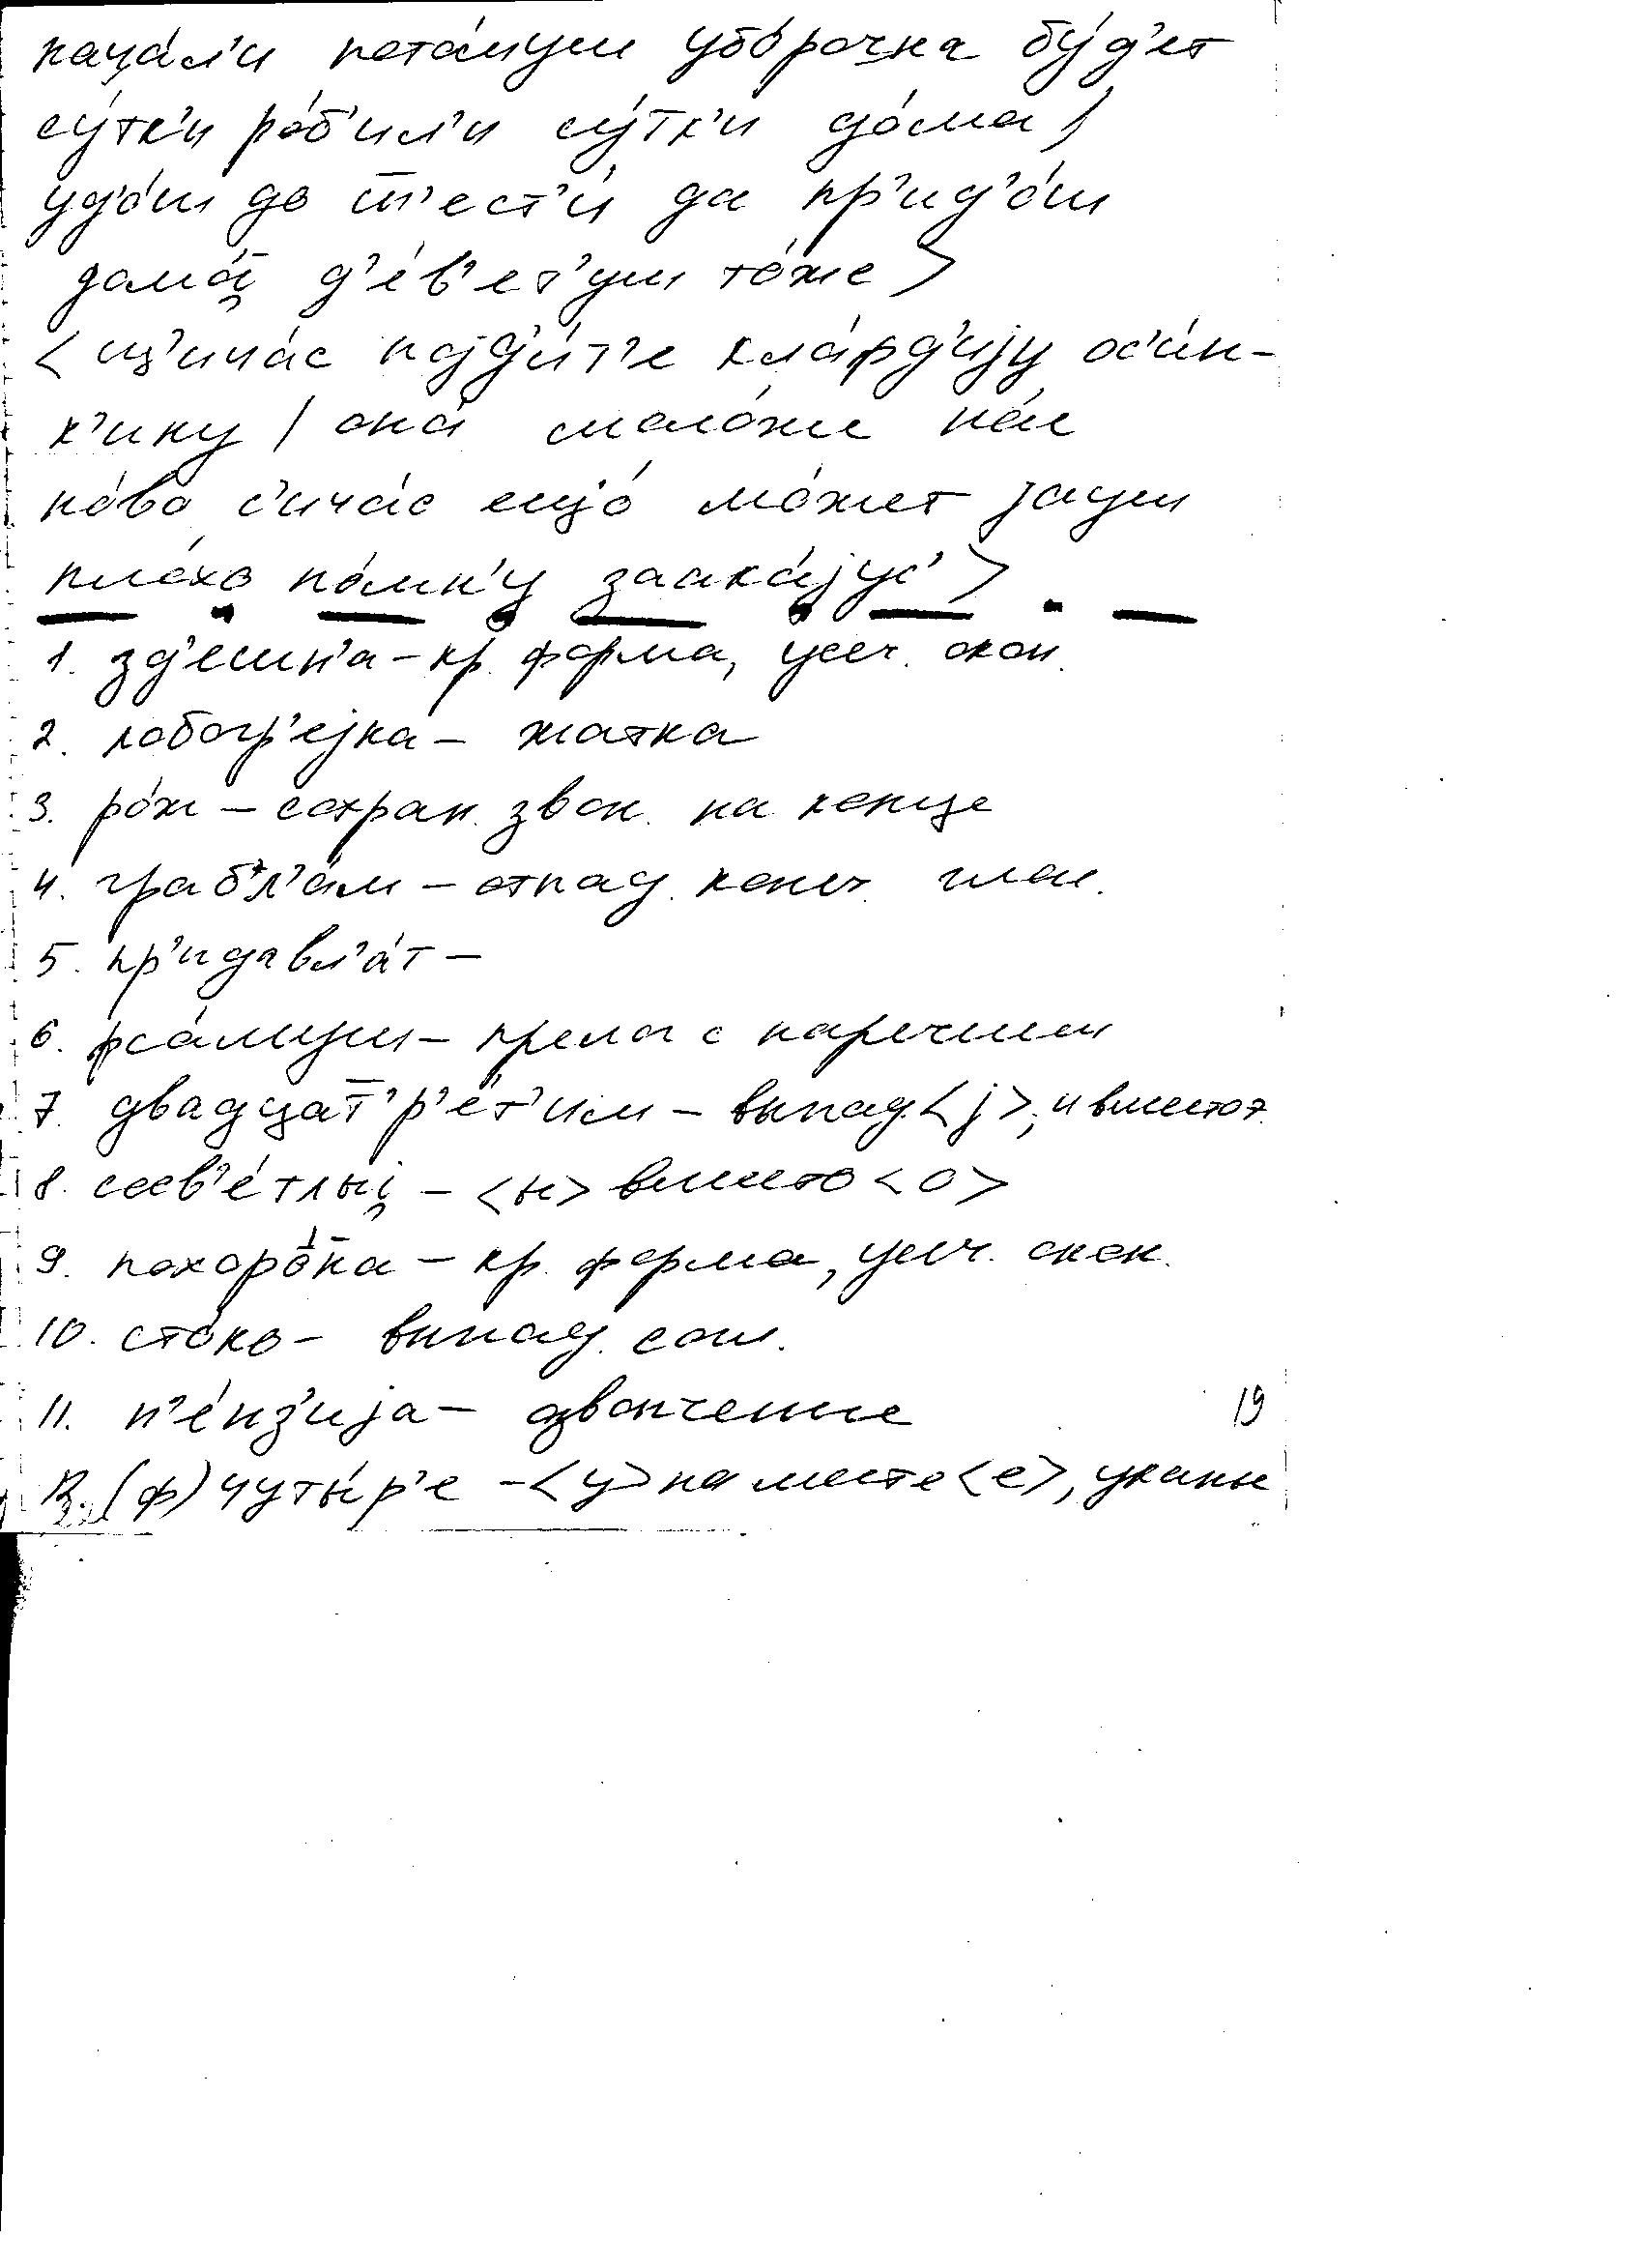 нача́л'и пета́муш убо́рочна бу́д'ет
су́тк'и ро́б'ил'и су́тк'и до́ма /
уд'о́ш до ш'ест'и́ да пр'ид'о́ш
д'е́в'ет'уш то́же >
појд'и́т'е кла́рд'ију ос'и́н-
к'ину / она́ моло́же
но́во с'ича́с ещо́ мо́жет јауш
пло́хо по́мн'у заика́јус' >
1. зд'ешн'а – кр. форма, усеч. окон.
2. лобогр'ејка – жатка
3. ро́ж – сохран. звон. на конце
4. грабл'а́м – отпад. конеч. глас.
5. пр'идавл'а́т –
6. рса́муш – предл с наречием
7. двадцат'р'е́т'им – выпад. <j>, и вместо э
8. с'ев'е́тлыј – <ы> вместо <о>
9. похоро́на – кр. форма, усеч. окон.
10. сто́ко – выпад. согл.
11. п'е́нз'ија – озвончение
19
12. (ф) чуты́р'е – <у> на месте <е>, уканье